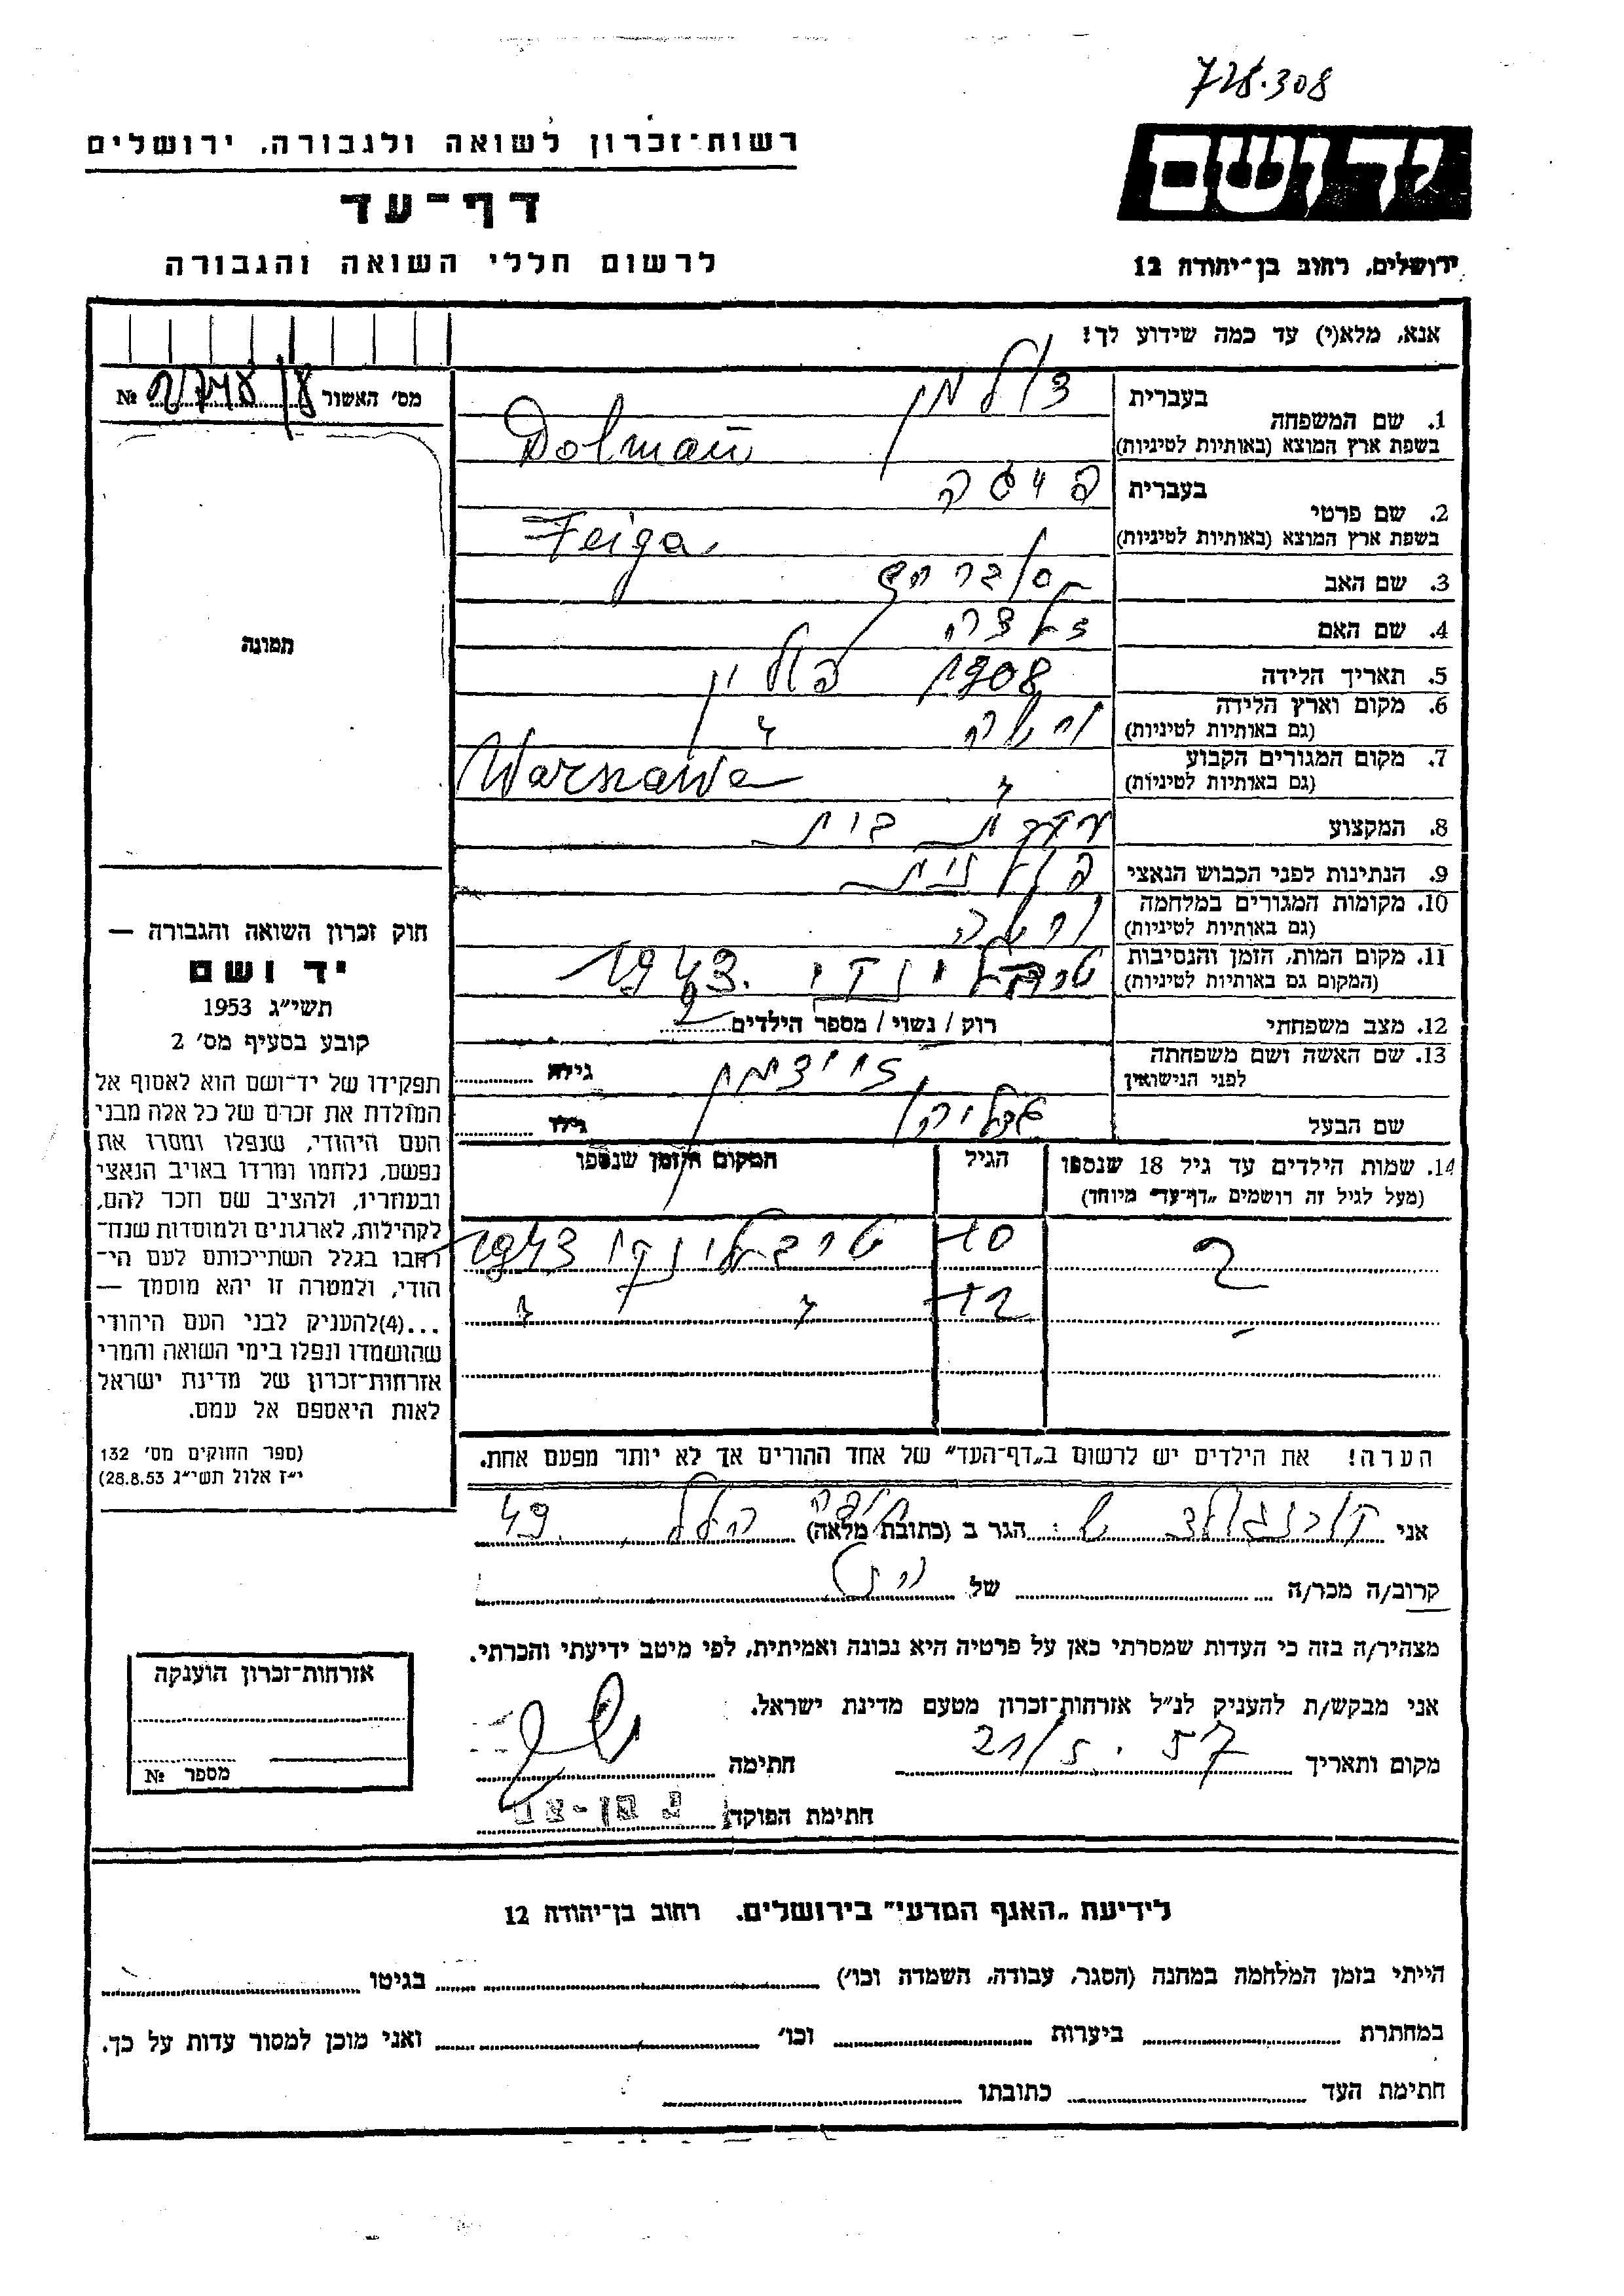 728.308
רשות־זכרון לשואה ולגבורה, ירושלים
יד ושם
דף־עד
לרשום חללי השואה והגבורה
ירושלים, רחוב בן־יהודה 12
אנא, מלא(י) עד כמה שידוע לך!
מס׳ האשור №
1. שם המשפחה
בעברית דולמן
בשפת ארץ המוצא (באותיות לטיניות) Dolman
2. שם פרטי
בעברית פייגה
בשפת ארץ המוצא (באותיות לטיניות) Feiga
3. שם האב
4. שם האם
5. תאריך הלידה 1908 פולין
6. מקום וארץ הלידה (גם באותיות לטיניות) ורשה "
7. מקום המגורים הקבוע (גם באותיות לטיניות) " Warszawa
8. המקצוע עקרת בית
9. הנתינות לפני הכבוש הנאצי פולנית
10. מקומות המגורים במלחמה (גם באותיות לטיניות) ורשה
11. מקום המות, הזמן והנסיבות (המקום גם באותיות לטיניות) טרבלינקי 1943.
12. מצב משפחתי רוק / נשוי / מספר הילדים 2
13. שם האשה ושם משפחתה לפני הנישואין גילה
שם הבעל גילו
14. שמות הילדים עד גיל 18 שנספו (מעל לגיל זה רושמים „דף־עד״ מיוחד)
הגיל
המקום והזמן שנספו
2 10 טרבלינקי 1943
12 " "
הערה! את הילדים יש לרשום ב„דף־העד״ של אחד ההורים אך לא יותר מפעם אחת.
תמונה
חוק זכרון השואה והגבורה —
יד ושם
תשי״ג 1953
קובע בסעיף מס׳ 2
תפקידו של יד־ושם הוא לאסוף אל
המולדת את זכרם של כל אלה מבני
העם היהודי, שנפלו ומסרו את
נפשם, נלחמו ומרדו באויב הנאצי
ובעוזריו, ולהציב שם וזכר להם,
לקהילות, לארגונים ולמוסדות שנח־
רבו בגלל השתייכותם לעם הי־
הודי, ולמטרה זו יהא מוסמך —
...(4) להעניק לבני העם היהודי
שהושמדו ונפלו בימי השואה והמרי
אזרחות־זכרון של מדינת ישראל
לאות היאספם אל עמם.
(ספר החוקים מס׳ 132
י״ז אלול תשי״ג 28.8.53)
אני הגר ב (כתובת מלאה) חיפה הלל 49
קרוב/ה מכר/ה של
מצהיר/ה בזה כי העדות שמסרתי כאן על פרטיה היא נכונה ואמיתית, לפי מיטב ידיעתי והכרתי.
אני מבקש/ת להעניק לנ״ל אזרחות־זכרון מטעם מדינת ישראל.
מקום ותאריך 21/5.57 חתימה
חתימת הפוקד
אזרחות־זכרון הוענקה
מספר №
לידיעת „האגף המדעי״ בירושלים, רחוב בן־יהודה 12
הייתי בזמן המלחמה במחנה (הסגר, עבודה, השמדה וכו׳) בגיטו
במחתרת ביערות וכו׳ ואני מוכן למסור עדות על כך.
חתימת העד כתובתו